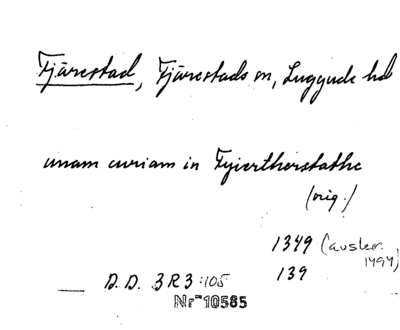 Fjärestad, Fjärestads sn, Luggude hd
unam curiam in Fyiertherstathe
(orig.)
1349 (avskr.
1494)
D.D. 3R3:105 139
Nr 10585